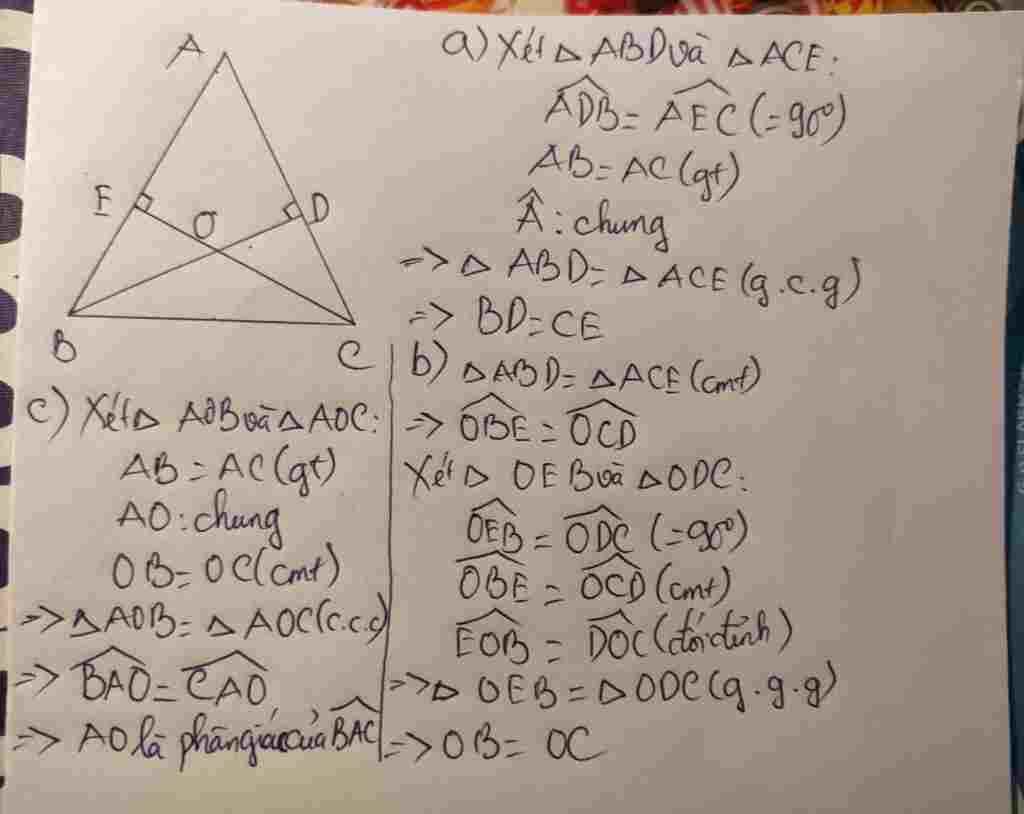 A
E
O
D
B
C
a) Xét △ ABD và △ ACE:
$\widehat{ADB}$ = $\widehat{AEC}$ (=90°)
AB = AC (gt)
$\widehat{A}$ : chung
=> △ ABD = △ ACE (g.c.g)
=> BD = CE
b) △ABD = △ACE (cmt)
=> $\widehat{OBE}$ = $\widehat{OCD}$
Xét △ OEB và △ODC:
$\widehat{OEB}$ = $\widehat{ODC}$ (=90°)
$\widehat{OBE}$ = $\widehat{OCD}$ (cmt)
$\widehat{EOB}$ = $\widehat{DOC}$ (đối đỉnh)
=> △ OEB = △ODC (g.g.g)
=> OB = OC
c) Xét △ AOB và △ AOC:
AB = AC (gt)
AO : chung
OB = OC (cmt)
=> △AOB = △ AOC (c.c.c)
=> $\widehat{BAO}$ = $\widehat{CAO}$
=> AO là phân giác của $\widehat{BAC}$